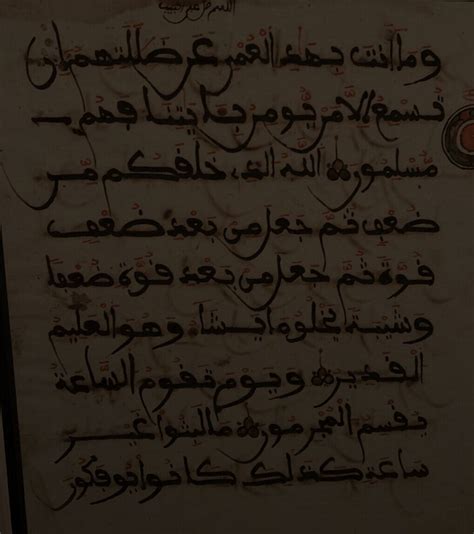 وما انت بهد العمي عن ضللتهم ان
تسمع الا من يومن بايتنا فهم
مسلمون الله الذي خلقكم من
ضعف ثم جعل من بعد ضعف
قوة ثم جعل من بعد قوة ضعفا
وشيبة يخلق ما يشاء وهو العليم
القدير ويوم تقوم الساعة
يقسم المجرمون ما لبثوا غير
ساعة كذلك كانوا يوفكون